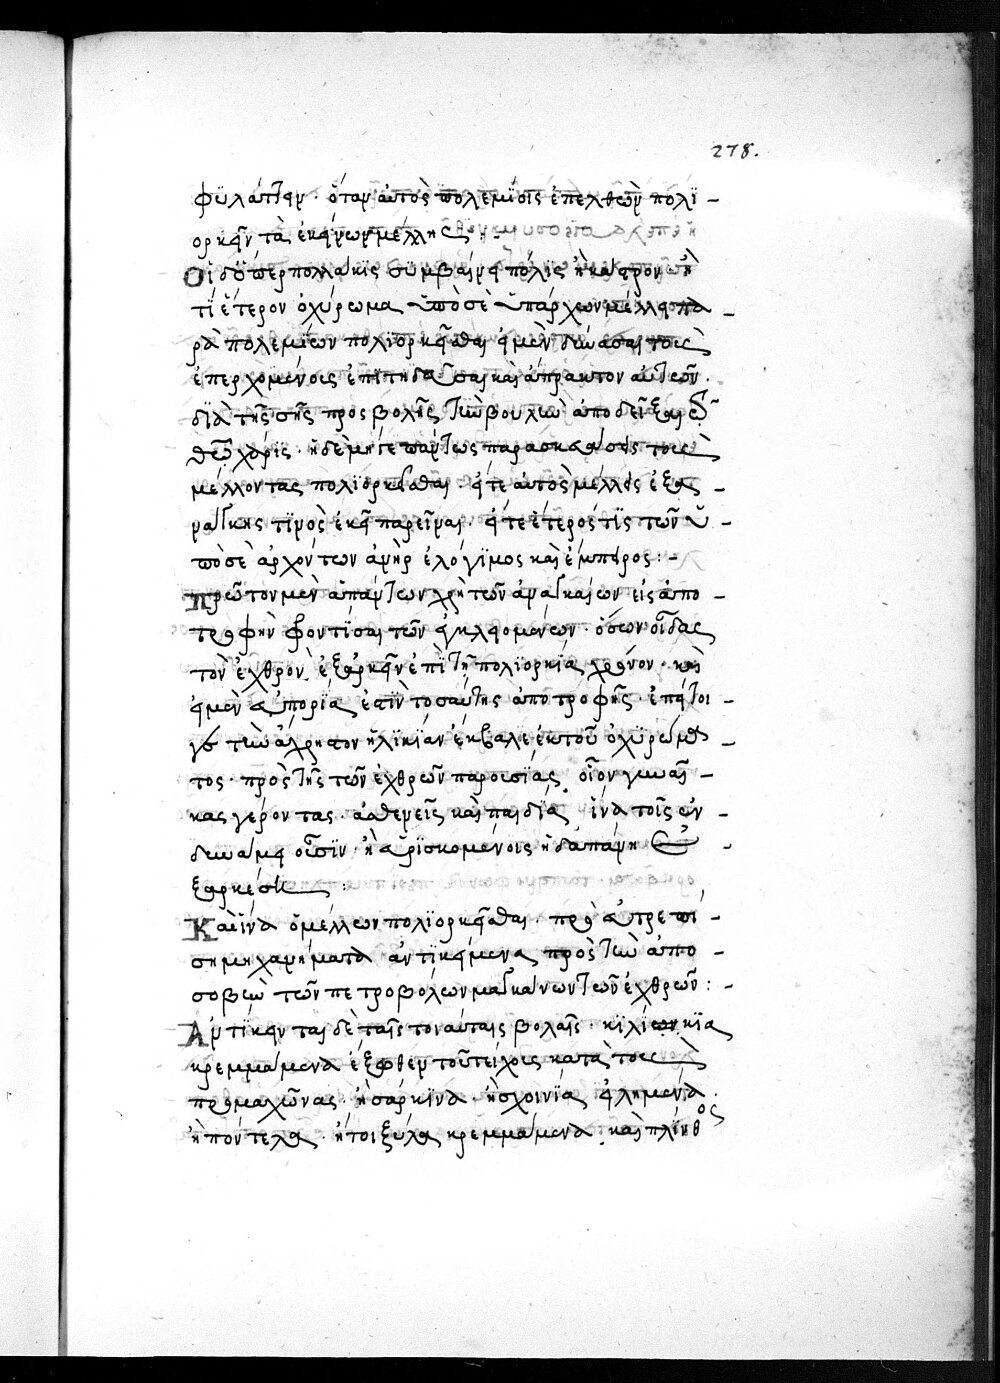 278.
φυλάττειν· ὅταν αὐτὸς πολεμίοις ἐπελθὼν πολι-
ορκεῖν τὰ ἐκείνων μέλλῃς:
Οἶδ' ὅπερ πολλάκις συμβαίνει πόλις ἢ κάστρον ἤ
τι ἕτερον ὀχύρωμα ὑπὸ σὲ ὑπάρχων μέλλει πα-
ρὰ πολεμίων πολιορκεῖσθαι εἰ μὲν δύνασαι τοῖς
ἐπερχομένοις ἐπιτηδεῦσαι καὶ ἄπρακτον αὐτῶν
διὰ τῆς σῆς προσβολῆς τὴν βουλὴν ἀποδεῖξαι
θεῷ χάρις· εἰ δὲ μή γε πάντως παρασκευάσεις τοὺς
μέλλοντας πολιορκεῖσθαι· εἴτε αὐτὸς μέλλεις ἐξ ἀ-
νάγκης τινὸς ἐκεῖ παρεῖναι· εἴτε ἕτερός τις τῶν ὑ-
πὸ σὲ ἀρχόντων ἀνὴρ ἐλόγιμος καὶ ἔμπειρος:-
Πρῶτον μὲν ἁπάντων χρὴ τῶν ἀναγκαίων εἰς ἀπο-
τροφὴν φροντίσαι τῶν ἐγκλειομένων· ὅσον οἶδας
τὸν ἐχθρὸν ἐξαρκεῖν ἐπὶ τῇ πολιορκίᾳ χρόνον· καὶ
εἰ μὲν ἀπορία ἐστὶν τοσαύτης ἀποτροφῆς· ἐπεί τοι
γε τὴν ἄχρηστον ἡλικίαν ἔκβαλε ἐκ τοῦ ὀχυρώμα-
τος· πρὸ τῆς τῶν ἐχθρῶν παρουσίας· οἷον γυναῖ-
κας γέροντας· ἀσθενεῖς καὶ παιδία· ἵνα τοῖς ἐν
δυνάμει οὖσιν· ἢ εὑρισκομένοις ἡ δαπάνη ἐ-
ξαρκέσῃ:
Καὶ ἵνα ὁ μέλλων πολιορκεῖσθαι· προευτρεπί-
σῃ μηχανήματα ἀντικείμενα πρὸς τὴν ἀπο-
σοβὴν τῶν πετροβόλων μαγκάνων τῶν ἐχθρῶν:-
Ἀντίκεινται δὲ ταῖς τοιαύταις βολαῖς· κιλίκια
κρεμάμενα ἔξωθεν τοῦ τείχους κατὰ τοὺς
προμαχῶνας· ἢ σάρκινα· ἢ σχοινία εἰλημένα
ἢ πόντελα· ἤτοι ξύλα κρεμμάμενα· καὶ πλίνθος